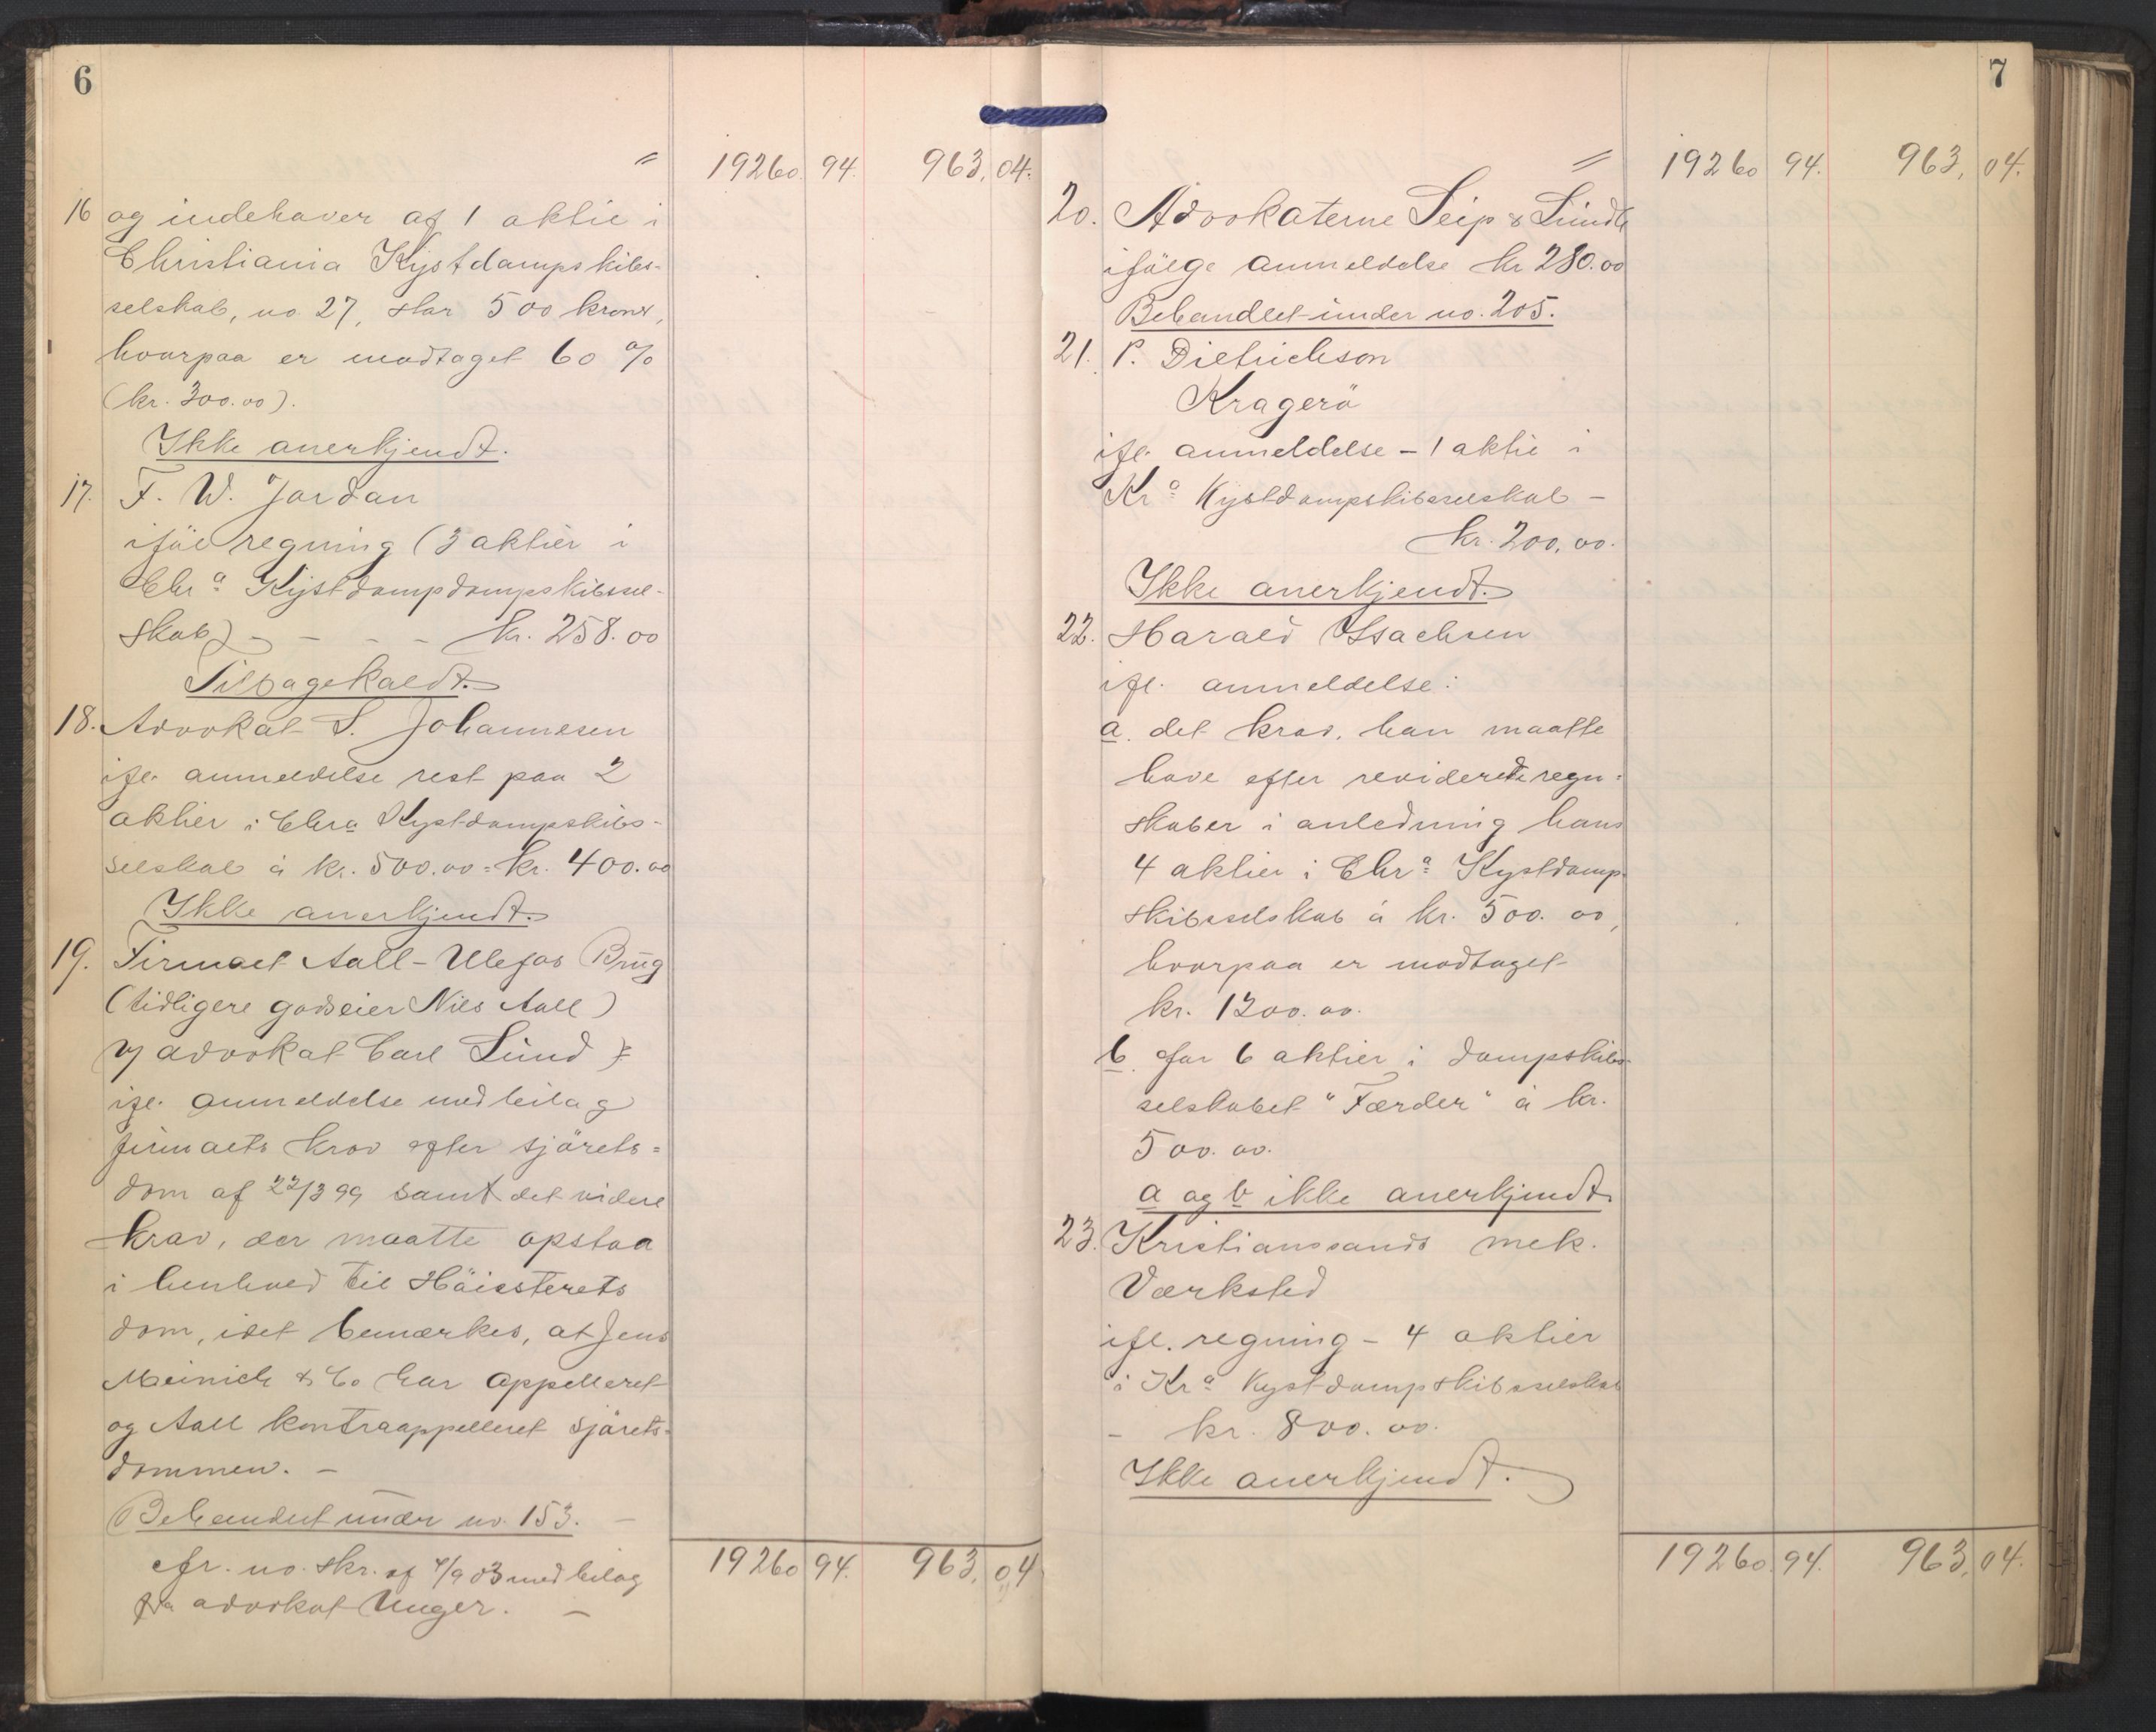 6
" 19260. 94. 963, 04.
16 og indehaver af 1 aktie i
Christiania Kystdampskibs-
selskab, no 27, stor 500 kroner,
hvorpaa er modtaget 60 %
(kr. 300.00).
Ikke anerkjendt.
17. F. W. Jordan
iföl regning (3 aktier i
Chra Kystdampdampskibssel-
skab) - - - - kr. 258.00
Tilbagekaldt.
18. Advokat S. Johannesen
ifl. anmeldelse rest paa 2
aktier i Chra Kystdampskibs-
selskab á kr. 500.00 = kr. 400.00
Ikke anerkjendt.
19. Firmaet Aall-Ulefos Brug
(tidligere godseier Nils Aall)
v/ advokat Carl Lund :
ifl. anmeldelse med bilag
firmaets krav efter sjörets=
dom af 22/3 99 samt det videre
krav, der maatte opstaa
i henhold til Höiesterets
dom, idet bemærkes, at Jens
Meinich & Co har appelleret
og Aall kontraappelleret sjörets-
dommen. -
Behandlet under no. 153. -
cfr. no. skr. af 4/9 03 med bilag
fra advokat Unger. -
19260 94. 963, 04
7
" 19260 94. 963, 04.
20. Advokaterne Seip & Lunde
ifölge anmeldelse kr 280.00
Behandlet under no. 205.
21. P. Dietrichson
Kragerö
ifl. anmeldelse - 1 aktie i
Kra Kystdampskibsselskab -
kr. 200,00.
Ikke anerkjendt.
22. Harald Isachsen
ifl. anmeldelse:
a. det krav, han maatte
have efter reviderede regn=
skaber i anledning hans
4 aktier i Chra Kystdamp-
skibsselskab á kr. 500.00,
hvorpaa er modtaget
kr. 1200.00.
b. for 6 aktier i dampskibs-
selskabet "Færder" á kr.
500.00.
a og b ikke anerkjendt.
23. Kristianssands mek.
Værksted
ifl. regning - 4 aktier
i Kra Kystdampskibsselskab
- kr. 800.00.
Ikke anerkjendt.
19260. 94. 963, 04.